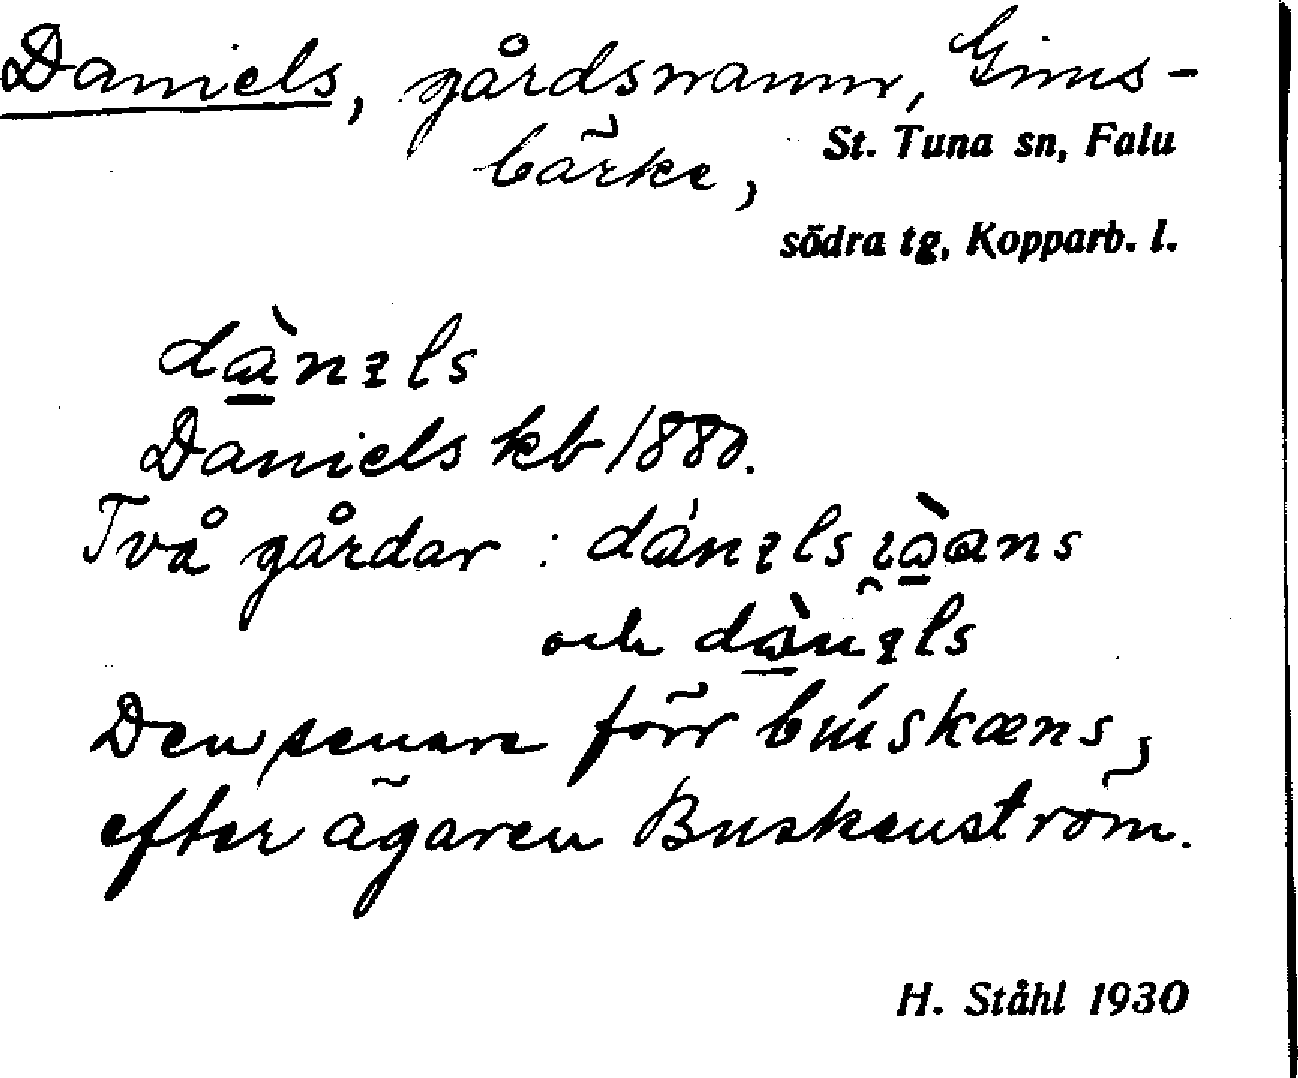 Daniels, gårdsnamn, Gims-
bärke, St. Tuna sn, Falu
södra tg, Kopparb. l.
dànɩls
Daniels kb 1880.
Två gårdar: dánɩls ɩ̯àans
och dànɩls
Den senare förr búskæns,
efter ägaren Buskenström.
H. Ståhl 1930